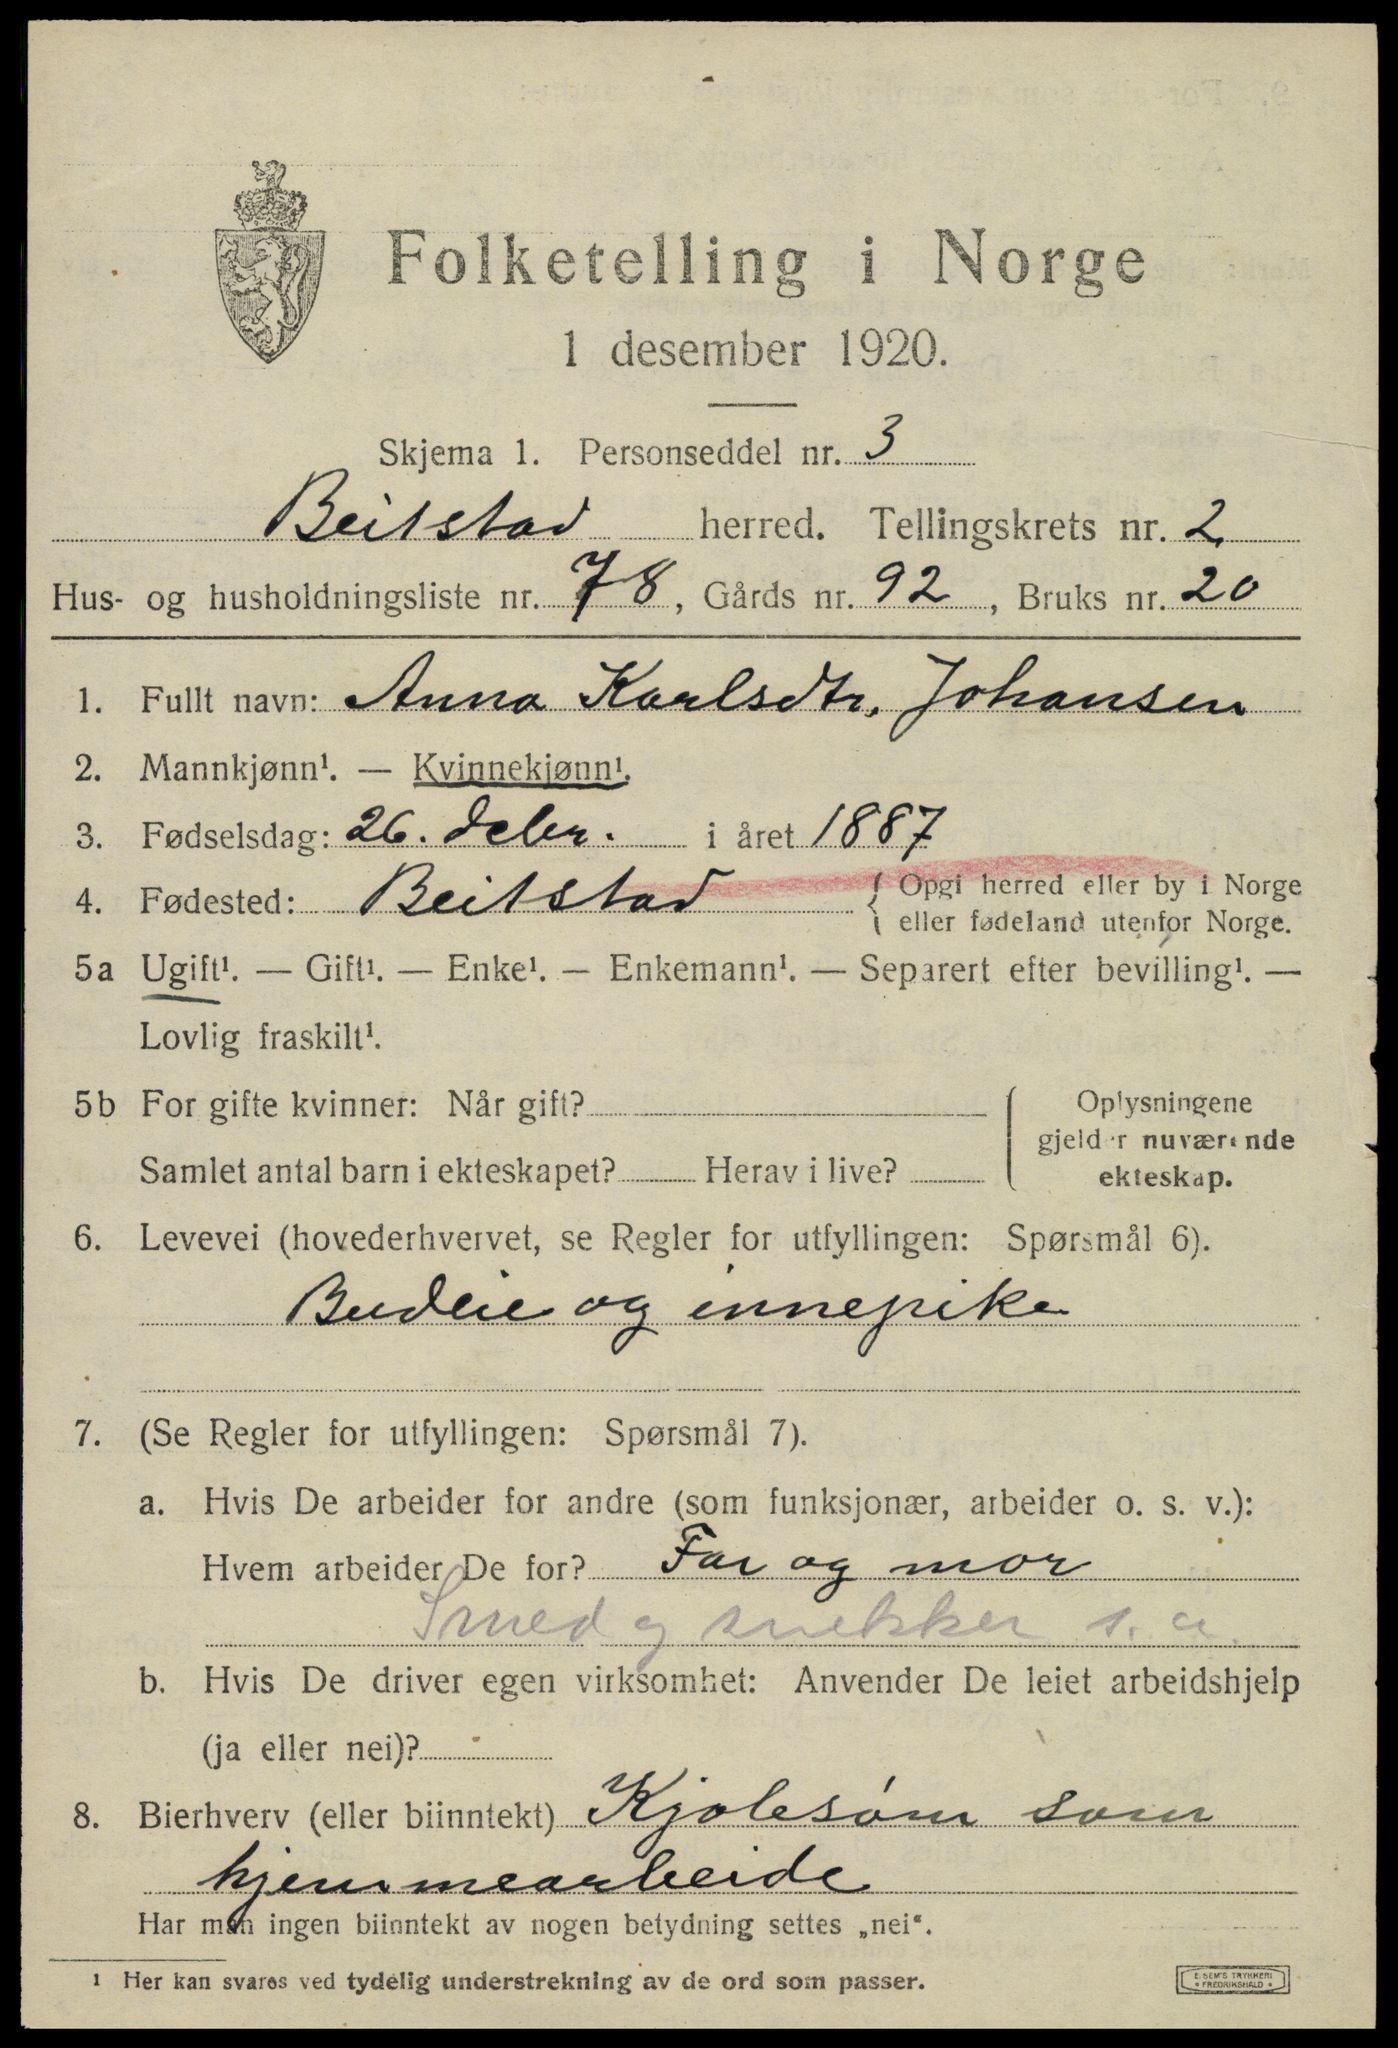 Folketelling i Norge
1 desember 1920.
Skjema 1. Personseddel nr. 3
Beitstad herred. Tellingskrets nr. 2
Hus- og husholdningsliste nr. 78, Gårds nr. 92, Bruks nr. 20
1. Fullt navn: Anna Karlsdtr. Johansen
2. Mannkjønn¹. — Kvinnekjønn¹.
3. Fødselsdag: 26. debr. i året 1887
4. Fødested: Beitstad { Opgi herred eller by i Norge
eller fødeland utenfor Norge.
5a Ugift¹. — Gift¹. — Enke¹. — Enkemann¹. — Separert efter bevilling¹. —
Lovlig fraskilt¹.
5b For gifte kvinner: Når gift? Oplysningene
gjelder nuværende
Samlet antal barn i ekteskapet? Herav i live? ekteskap.
6. Levevei (hovederhvervet, se Regler for utfyllingen: Spørsmål 6).
Budeie og innepike
7. (Se Regler for utfyllingen: Spørsmål 7).
a. Hvis De arbeider for andre (som funksjonær, arbeider o. s. v.):
Hvem arbeider De for? Far og mor
Smed og snekker s. a.
b. Hvis De driver egen virksomhet: Anvender De leiet arbeidshjelp
(ja eller nei)?
8. Bierhverv (eller biinntekt) Kjolesøm som
hjemmearbeide
Har man ingen biinntekt av nogen betydning settes „nei“.
¹ Her kan svares ved tydelig understrekning av de ord som passer.
E. SEM'S TRYKKERI
FREDRIKSHALD